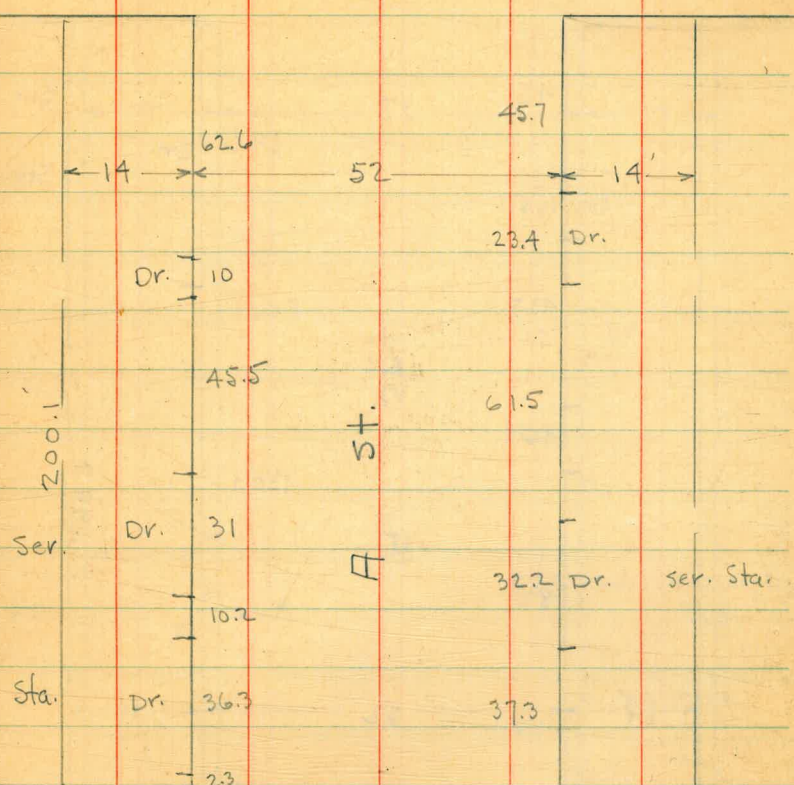 45.7
62.6
14 52 14'
23.4 Dr.
Dr. 10
45.5
61.5
200.1'
A St.
Ser. Dr. 31
32.2 Dr. Ser. Sta.
10.2
Sta. Dr. 36.3
37.3
2.3